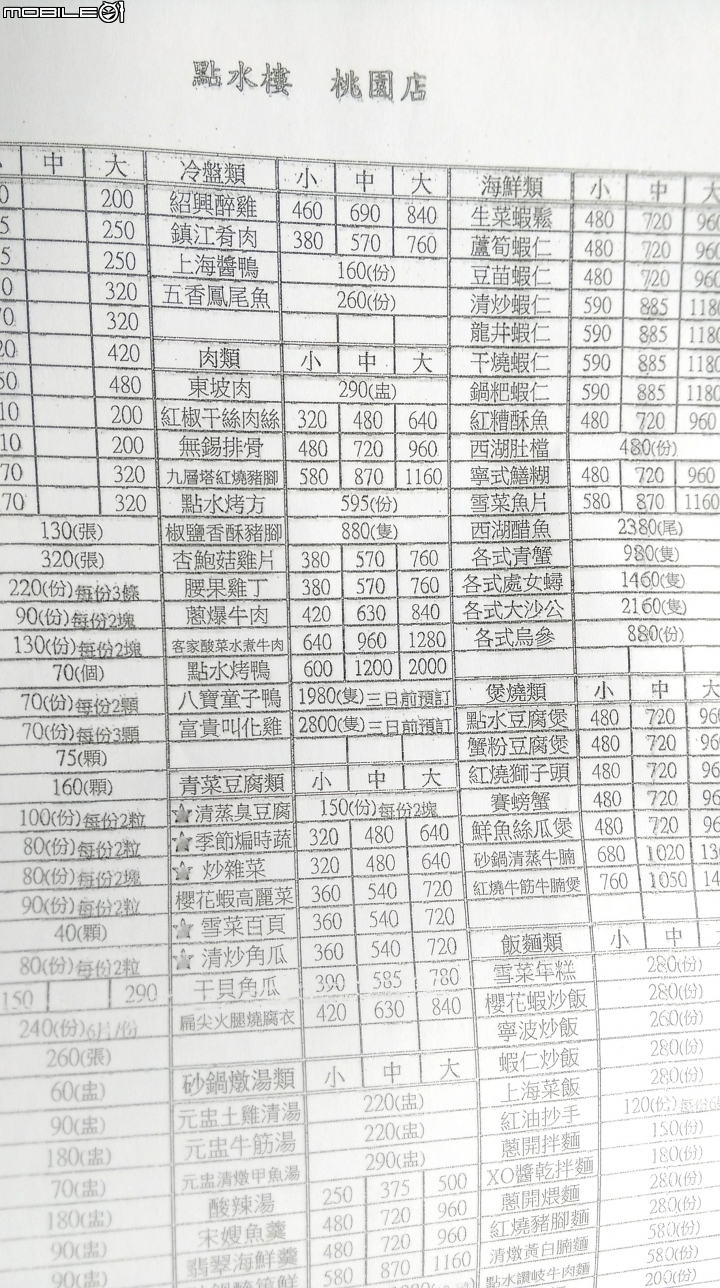 MOBILE01
點水樓 桃園店
中 大
200
250
250
320
320
420
480
200
200
320
320
130(張)
320(張)
220(份)每份3條
90(份)每份2塊
130(份)每份2塊
70(個)
70(份)每份2顆
70(份)每份3顆
75(顆)
160(顆)
100(份)每份2粒
80(份)每份2粒
80(份)每份2塊
90(份)每份2粒
40(顆)
80(份)每份2粒
150 290
240(份)6片/份
260(張)
60(盅)
90(盅)
180(盅)
70(盅)
180(盅)
90(盅)
90(盅)
冷盤類 小 中 大
紹興醉雞 460 690 840
鎮江肴肉 380 570 760
上海醬鴨 160(份)
五香鳳尾魚 260(份)
肉類 小 中 大
東坡肉 290(盅)
紅椒干絲肉絲 320 480 640
無錫排骨 480 720 960
九層塔紅燒豬腳 580 870 1160
點水烤方 595(份)
椒鹽香酥豬腳 880(隻)
杏鮑菇雞片 380 570 760
腰果雞丁 380 570 760
蔥爆牛肉 420 630 840
客家酸菜水煮牛肉 640 960 1280
點水烤鴨 600 1200 2000
八寶童子鴨 1980(隻)三日前預訂
富貴叫化雞 2800(隻)三日前預訂
青菜豆腐類 小 中 大
★清蒸臭豆腐 150(份)每份2塊
★季節煸時蔬 320 480 640
★炒雜菜 320 480 640
櫻花蝦高麗菜 360 540 720
★雪菜百頁 360 540 720
★清炒角瓜 360 540 720
干貝角瓜 390 585 780
扁尖火腿燒腐衣 420 630 840
砂鍋燉湯類 小 中 大
元盅土雞清湯 220(盅)
元盅牛筋湯 220(盅)
元盅清燉甲魚湯 290(盅)
酸辣湯 250 375 500
宋嫂魚羹 480 720 960
翡翠海鮮羹 480 720 960
580 870 1160
海鮮類 小 中 大
生菜蝦鬆 480 720 960
蘆筍蝦仁 480 720 960
豆苗蝦仁 480 720 960
清炒蝦仁 590 885 1180
龍井蝦仁 590 885 1180
干燒蝦仁 590 885 1180
鍋粑蝦仁 590 885 1180
紅糟酥魚 480 720 960
西湖肚檔 480(份)
寧式鱔糊 480 720 960
雪菜魚片 580 870 1160
西湖醋魚 2380(尾)
各式青蟹 980(隻)
各式處女蟳 1460(隻)
各式大沙公 2160(隻)
各式烏參 880(份)
煲燒類 小 中 大
點水豆腐煲 480 720 960
蟹粉豆腐煲 480 720 960
紅燒獅子頭 480 720 960
賽螃蟹 480 720 960
鮮魚絲瓜煲 480 720 960
砂鍋清蒸牛腩 680 1020
紅燒牛筋牛腩煲 760 1050
飯麵類 小 中 大
雪菜年糕 280(份)
櫻花蝦炒飯 280(份)
寧波炒飯 260(份)
蝦仁炒飯 280(份)
上海菜飯 280(份)
紅油抄手 120(份)每份6
蔥開拌麵 150(份)
XO醬乾拌麵 180(份)
蔥開煨麵 280(份)
紅燒豬腳麵 280(份)
清燉黃白腩麵 580(份)
點水讚岐牛肉麵 580(份)
200(份)